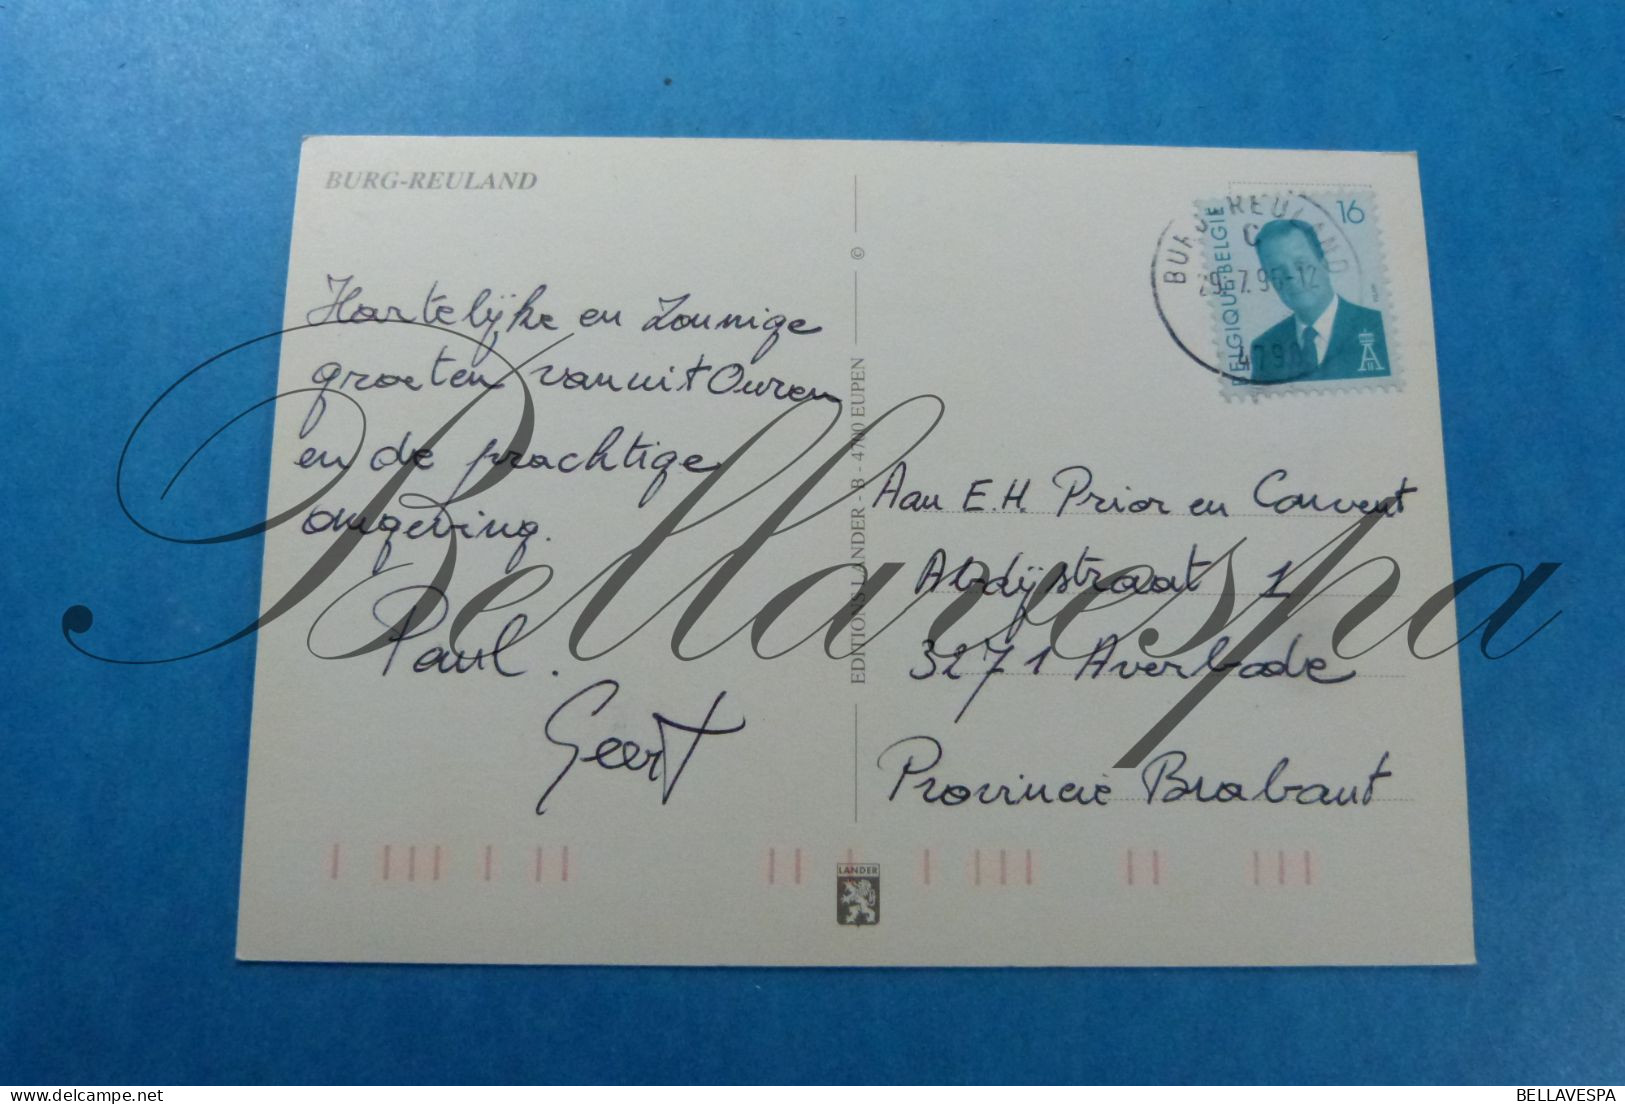 BURG-REULAND
Hartelijke en Zonnige
groeten vanuit Ouren
en de prachtige
omgeving.
Paul.
Geert
©
EDITIONS LANDER - B - 4700 EUPEN
LANDER
BURG-REULAND
C
29-7.96-12
4790
16
BELGIQUE-BELGIE
Aan E.H. Prior en Convent
Abdijstraat 1
3271 Averbode
Provincie Brabant
Bellavespa
BELLAVESPA